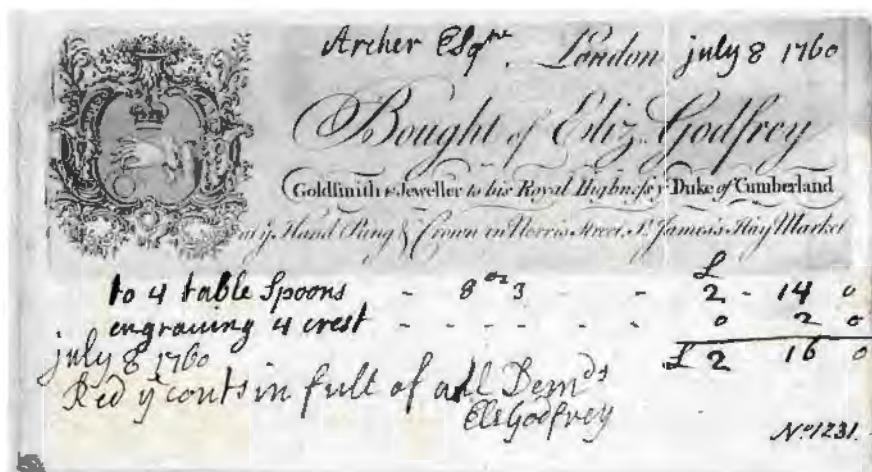 Archer Esqre. London july 8 1760
Bought of Eliz. Godfrey
Goldsmith & Jeweller to his Royal Highness ye Duke of Cumberland
at ye Hand Ring & Crown in Norris Street, St. James's Hay Market
£
to 4 table Spoons - 8 oz 3 - - 2 - 14 0
engraving 4 crest - - - - - - 0 2 0
july 8 1760 £ 2 16 0
Recd ye conts in full of all Demds
Eliz Godfrey
No. 1231.